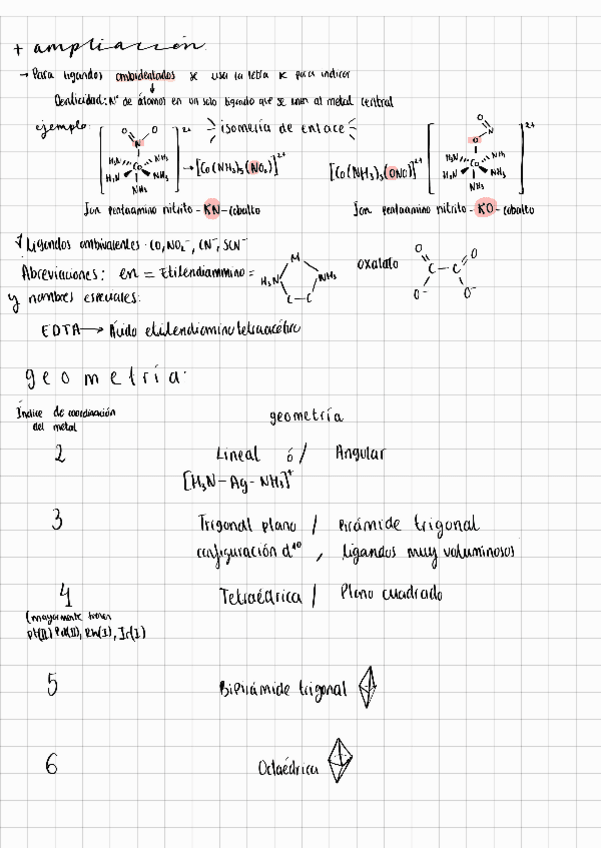 + ampliación
→ Para ligandos ambidentados se usa la letra K para indicar
Denticidad: Nº de átomos en un solo ligando que se unen al metal central
ejemplo: isomería de enlace
[Co(NH₃)₅(NO₂)]²⁺ [Co(NH₃)₅(ONO)]²⁺
O O N H₃N NH₃ Co H₃N NH₃ NH₃ 2+
O N O H₃N NH₃ Co H₃N NH₃ NH₃ 2+
Ion pentaamino nitrito-KN-cobalto Ion pentaamino nitrito-KO-cobalto
Ligandos ambivalentes: CO, NO₂⁻, CN⁻, SCN⁻
Abreviaciones: en = Etilendiammino = H₃N M NH₃ C–C oxalato O O C–C O⁻ O⁻
y nombres especiales:
EDTA → Ácido etilendiamino tetraacético
geometría
Índice de coordinación geometría
del metal
2 Lineal ó / Angular
[H₃N–Ag–NH₃]⁺
3 Trigonal plano / Pirámide trigonal
configuración d¹⁰, ligandos muy voluminosos
4 Tetraédrica / Plano cuadrado
(mayormente tienen
Pt(II) Pd(II), Rh(I), Ir(I)
5 Bipirámide trigonal
6 Octaédrica